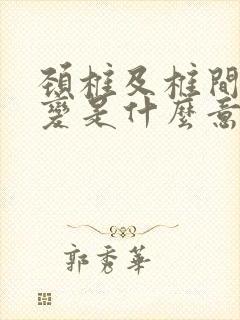 頚椎及椎間
變是什麼意
郭秀華